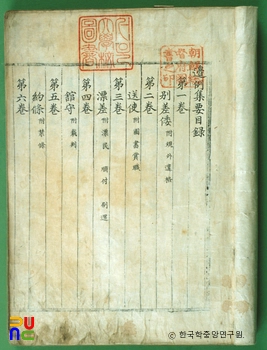 邊例集要目錄
第一卷
別差倭 附規外違格
第二卷
送使 附圖書賞職
第三卷
漂差 附漂民 順付 刷還
第四卷
館守 附裁判
第五卷
約條 附禁條
第六卷
© 한국학중앙연구원